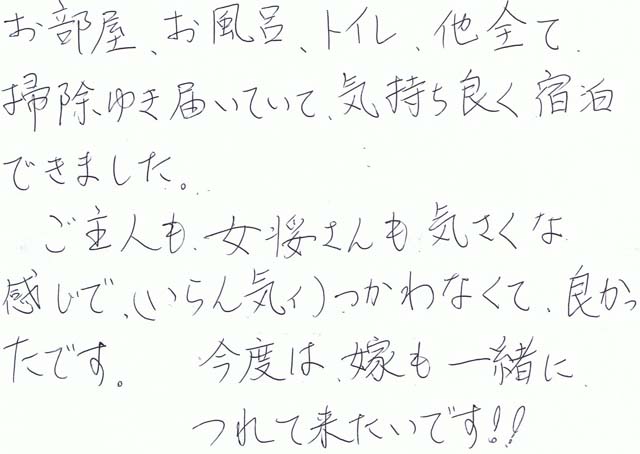 お部屋、お風呂、トイレ、他全て、
掃除ゆき届いていて、気持ち良く宿泊
できました。
ご主人も、女将さんも、気さくな
感じで、(いらん気ィ)つかわなくて、良かっ
たです。 今度は、嫁も一緒に
つれて来たいです!!